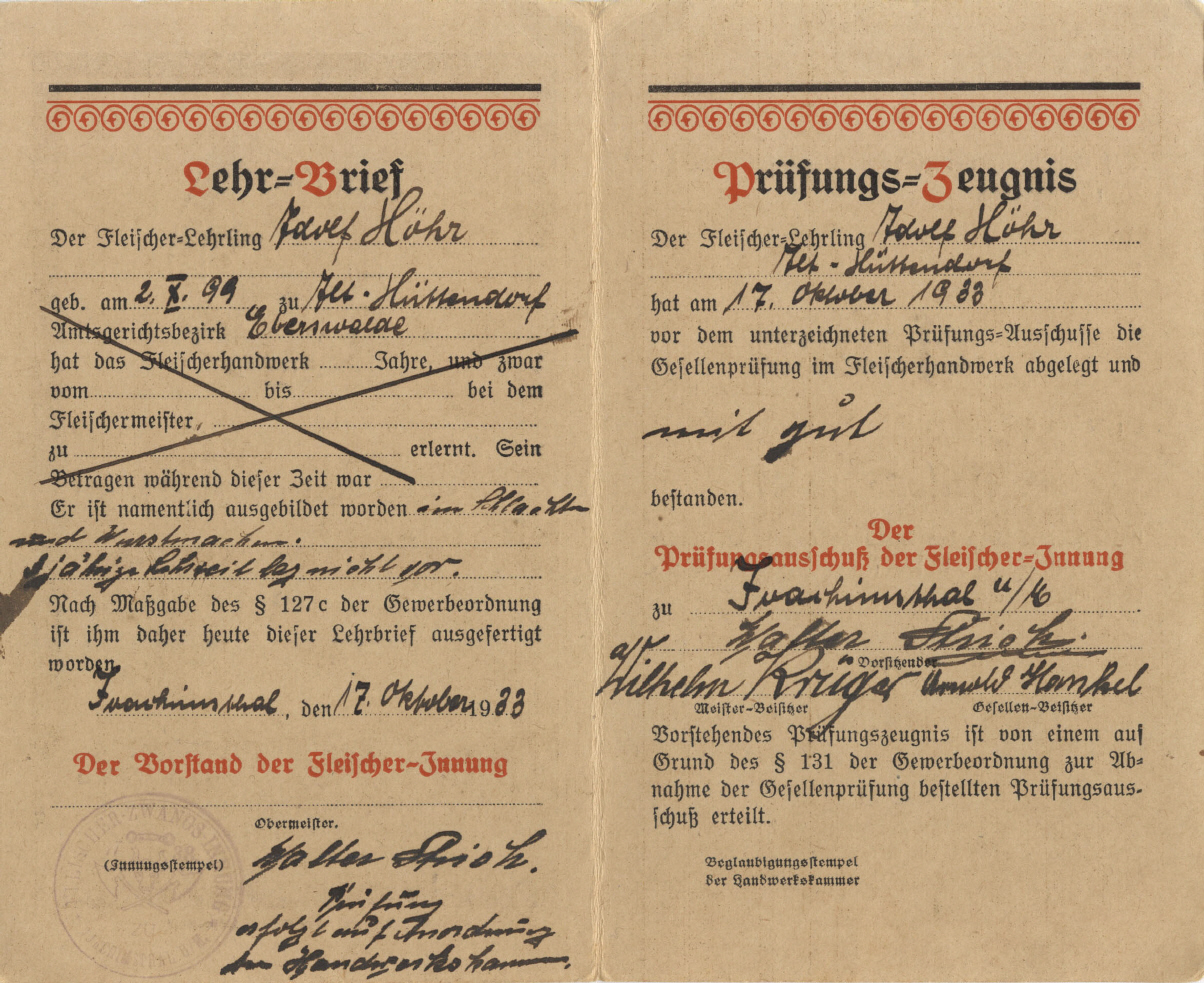 Lehr-Brief
Der Fleischer-Lehrling Adolf Höhr
geb. am 2. X. 99 zu Alt-Hüttendorf
Amtsgerichtsbezirk Eberswalde
hat das Fleischerhandwerk Jahre, und zwar
vom bis bei dem
Fleischermeister,
zu erlernt. Sein
Betragen während dieser Zeit war
Er ist namentlich ausgebildet worden im Schlachten
und Wurstmachen.
3jährige Lehrzeit lag nicht vor.
Nach Maßgabe des § 127c der Gewerbeordnung
ist ihm daher heute dieser Lehrbrief ausgefertigt
worden
Joachimsthal, den 17. Oktober 1933
Der Vorstand der Fleischer-Innung
Obermeister.
(Innungsstempel) Walter
Prüfung
erfolgt auf Anordnung
der Handwerkskammer.
Prüfungs-Zeugnis
Der Fleischer-Lehrling Adolf Höhr
Alt-Hüttendorf
hat am 17. Oktober 1933
vor dem unterzeichneten Prüfungs-Ausschusse die
Gesellenprüfung im Fleischerhandwerk abgelegt und
mit gut
bestanden.
Der
Prüfungsausschuß der Fleischer-Innung
zu Joachimsthal u/M
Walter
Vorsitzender
Wilhelm Krüger Arnold Hankel
Meister-Beisitzer Gesellen-Beisitzer
Vorstehendes Prüfungszeugnis ist von einem auf
Grund des § 131 der Gewerbeordnung zur Ab-
nahme der Gesellenprüfung bestellten Prüfungsaus-
schuß erteilt.
Beglaubigungsstempel
der Handwerkskammer